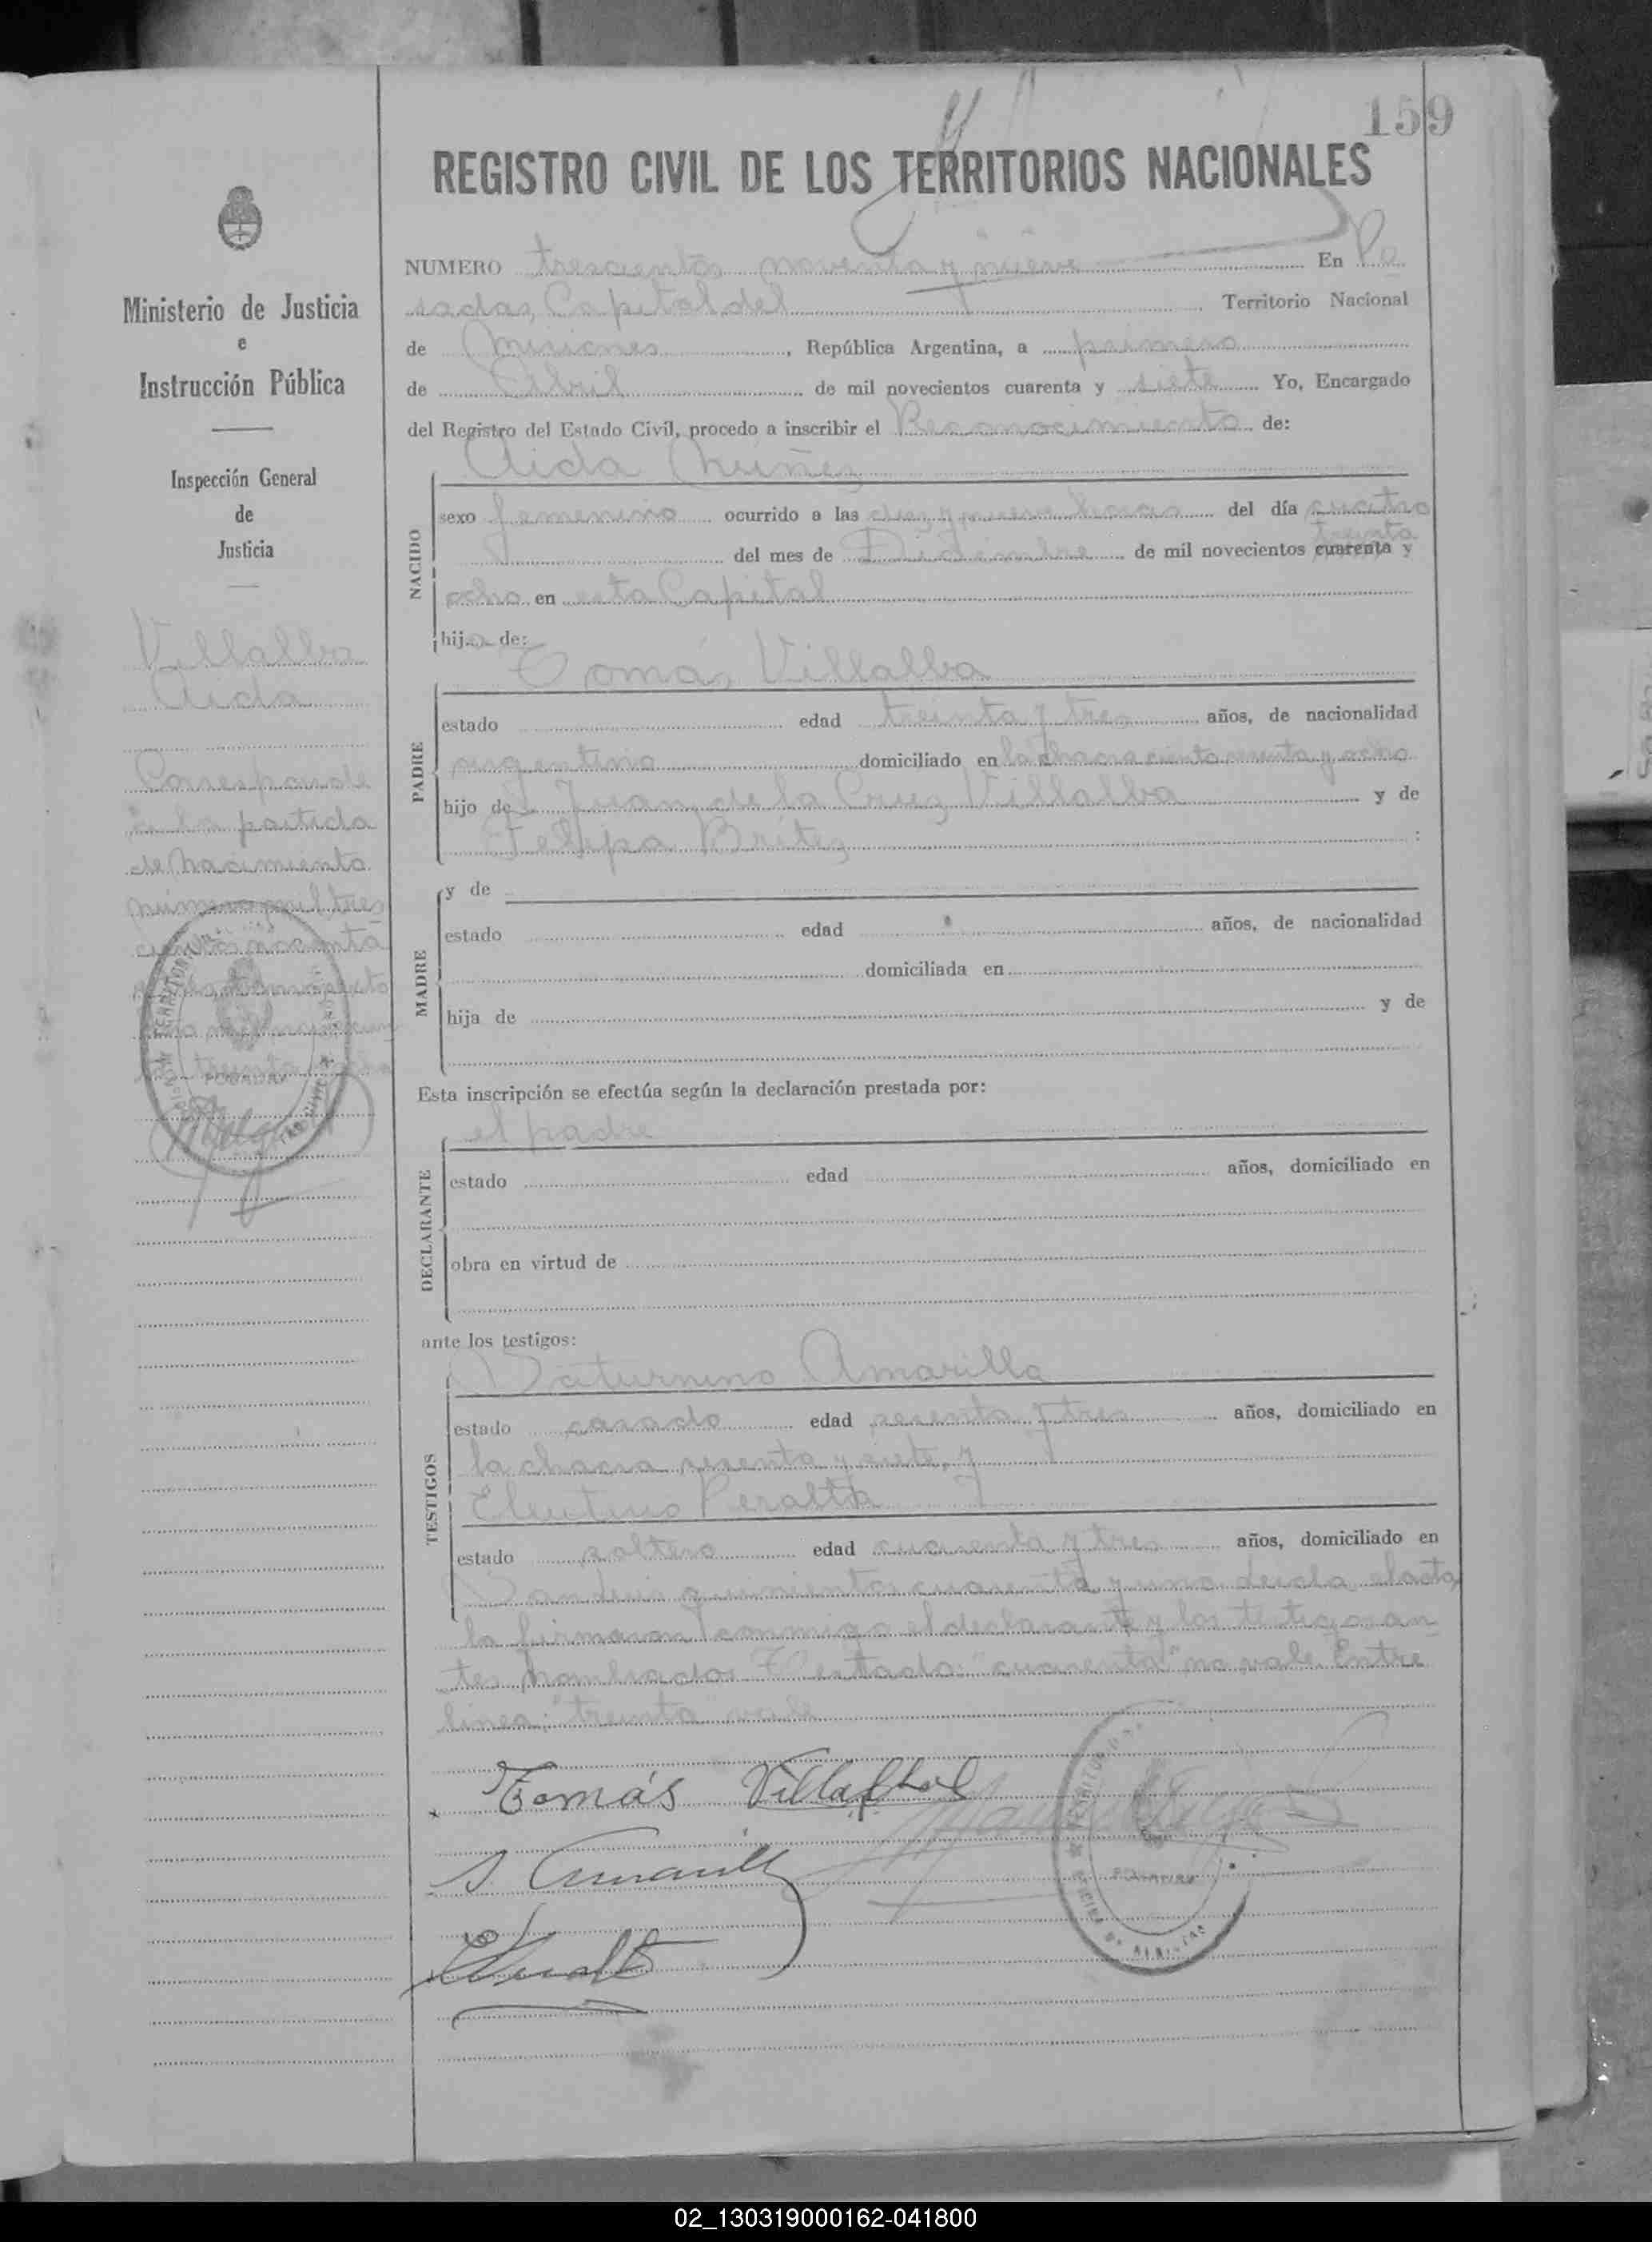 159
REGISTRO CIVIL DE LOS TERRITORIOS NACIONALES
Ministerio de Justicia
e
Instrucción Pública
Inspección General
de
Justicia
Villalba
Aida
Corresponde
a la partida
de Nacimiento
número mil tres
cientos noventa
treinta
NUMERO trescientos noventa y nueve En Po
sadas, Capital del Territorio Nacional
de Misiones, República Argentina, a primero
de Abril de mil novecientos cuarenta y siete Yo, Encargado
del Registro del Estado Civil, procedo a inscribir el Reconocimiento de:
Aida Nuñez
NACIDO
sexo femenino ocurrido a las diez y nueve horas del día cuatro
treinta
del mes de Diciembre de mil novecientos cuarenta y
ocho en esta Capital
hija de:
Tomás Villalba
PADRE
estado edad treinta y tres años, de nacionalidad
argentino domiciliado en la chacra ciento y ocho
hijo de Juan de la Cruz Villalba y de
Felipa Britez :
MADRE
y de
estado edad años, de nacionalidad
domiciliada en
hija de y de
Esta inscripción se efectúa según la declaración prestada por:
el padre
DECLARANTE
estado edad años, domiciliado en
obra en virtud de
ante los testigos:
Saturnino Amarilla
TESTIGOS
estado casado edad sesenta y tres años, domiciliado en
la chacra sesenta y siete, y
Eleuterio Peralta
estado soltero edad cuarenta y tres años, domiciliado en
San Luis quinientos cuarenta y uno. Leida el acta
la firmaron conmigo el declarante y los testigos an
tes nombrados. Testado: "cuarenta" no vale. Entre
linea: "treinta" vale
Tomás Villalba
S. Amarilla
02_130319000162-041800